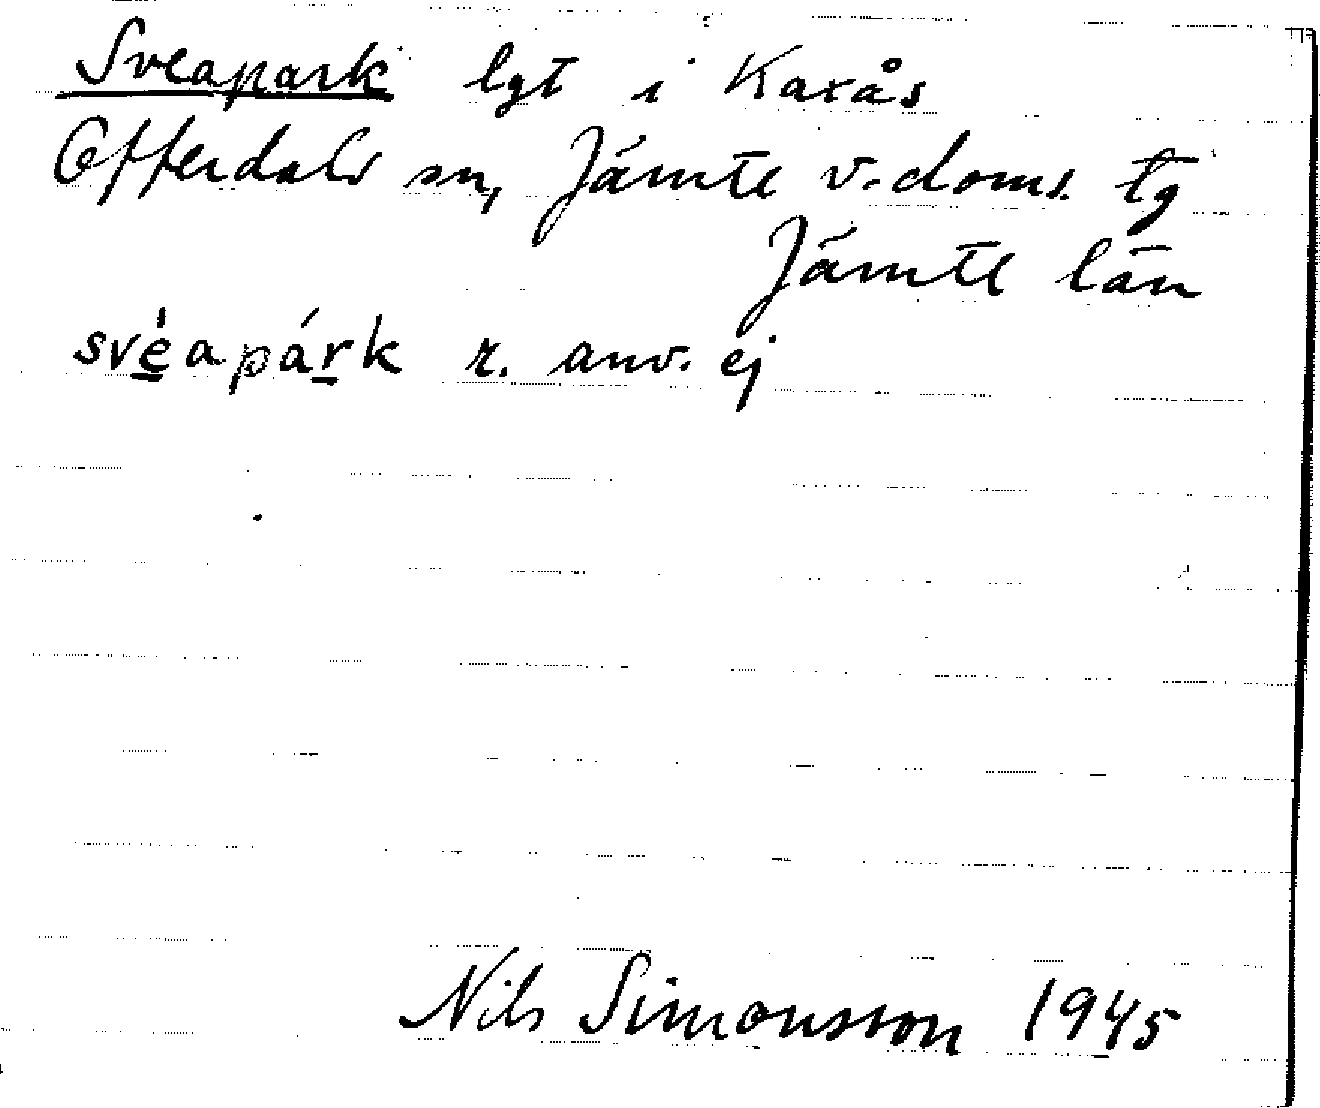 Sveapark lgt i Kaxås
Offerdals sn, Jämtl v. doms. tg
Jämtl län
svéapárk r. anv. ej
Nils Simonsson 1945